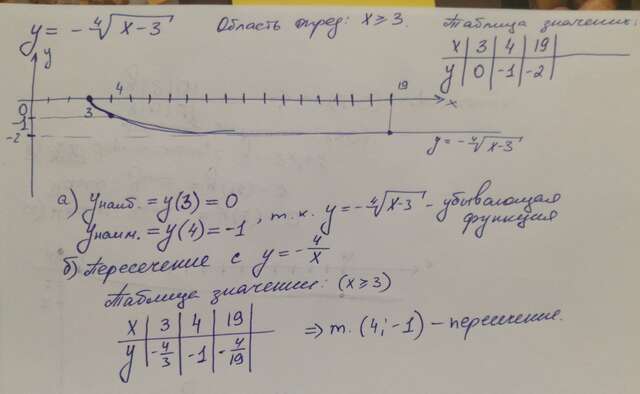 y = -∜(x-3)  Область опред: x ≥ 3.  Таблица значений:
x | 3 | 4 | 19
y | 0 | -1 | -2
y
4
19
x
0
3
-1
-2
y = -∜(x-3)
а) yнаиб. = y(3) = 0
yнаим. = y(4) = -1, т.к. y = -∜(x-3) - убывающая функция
б) Пересечение с y = -4/x
Таблица значений: (x ≥ 3)
x | 3 | 4 | 19
y | -4/3 | -1 | -4/19
⇒ т. (4; -1) - пересечение.